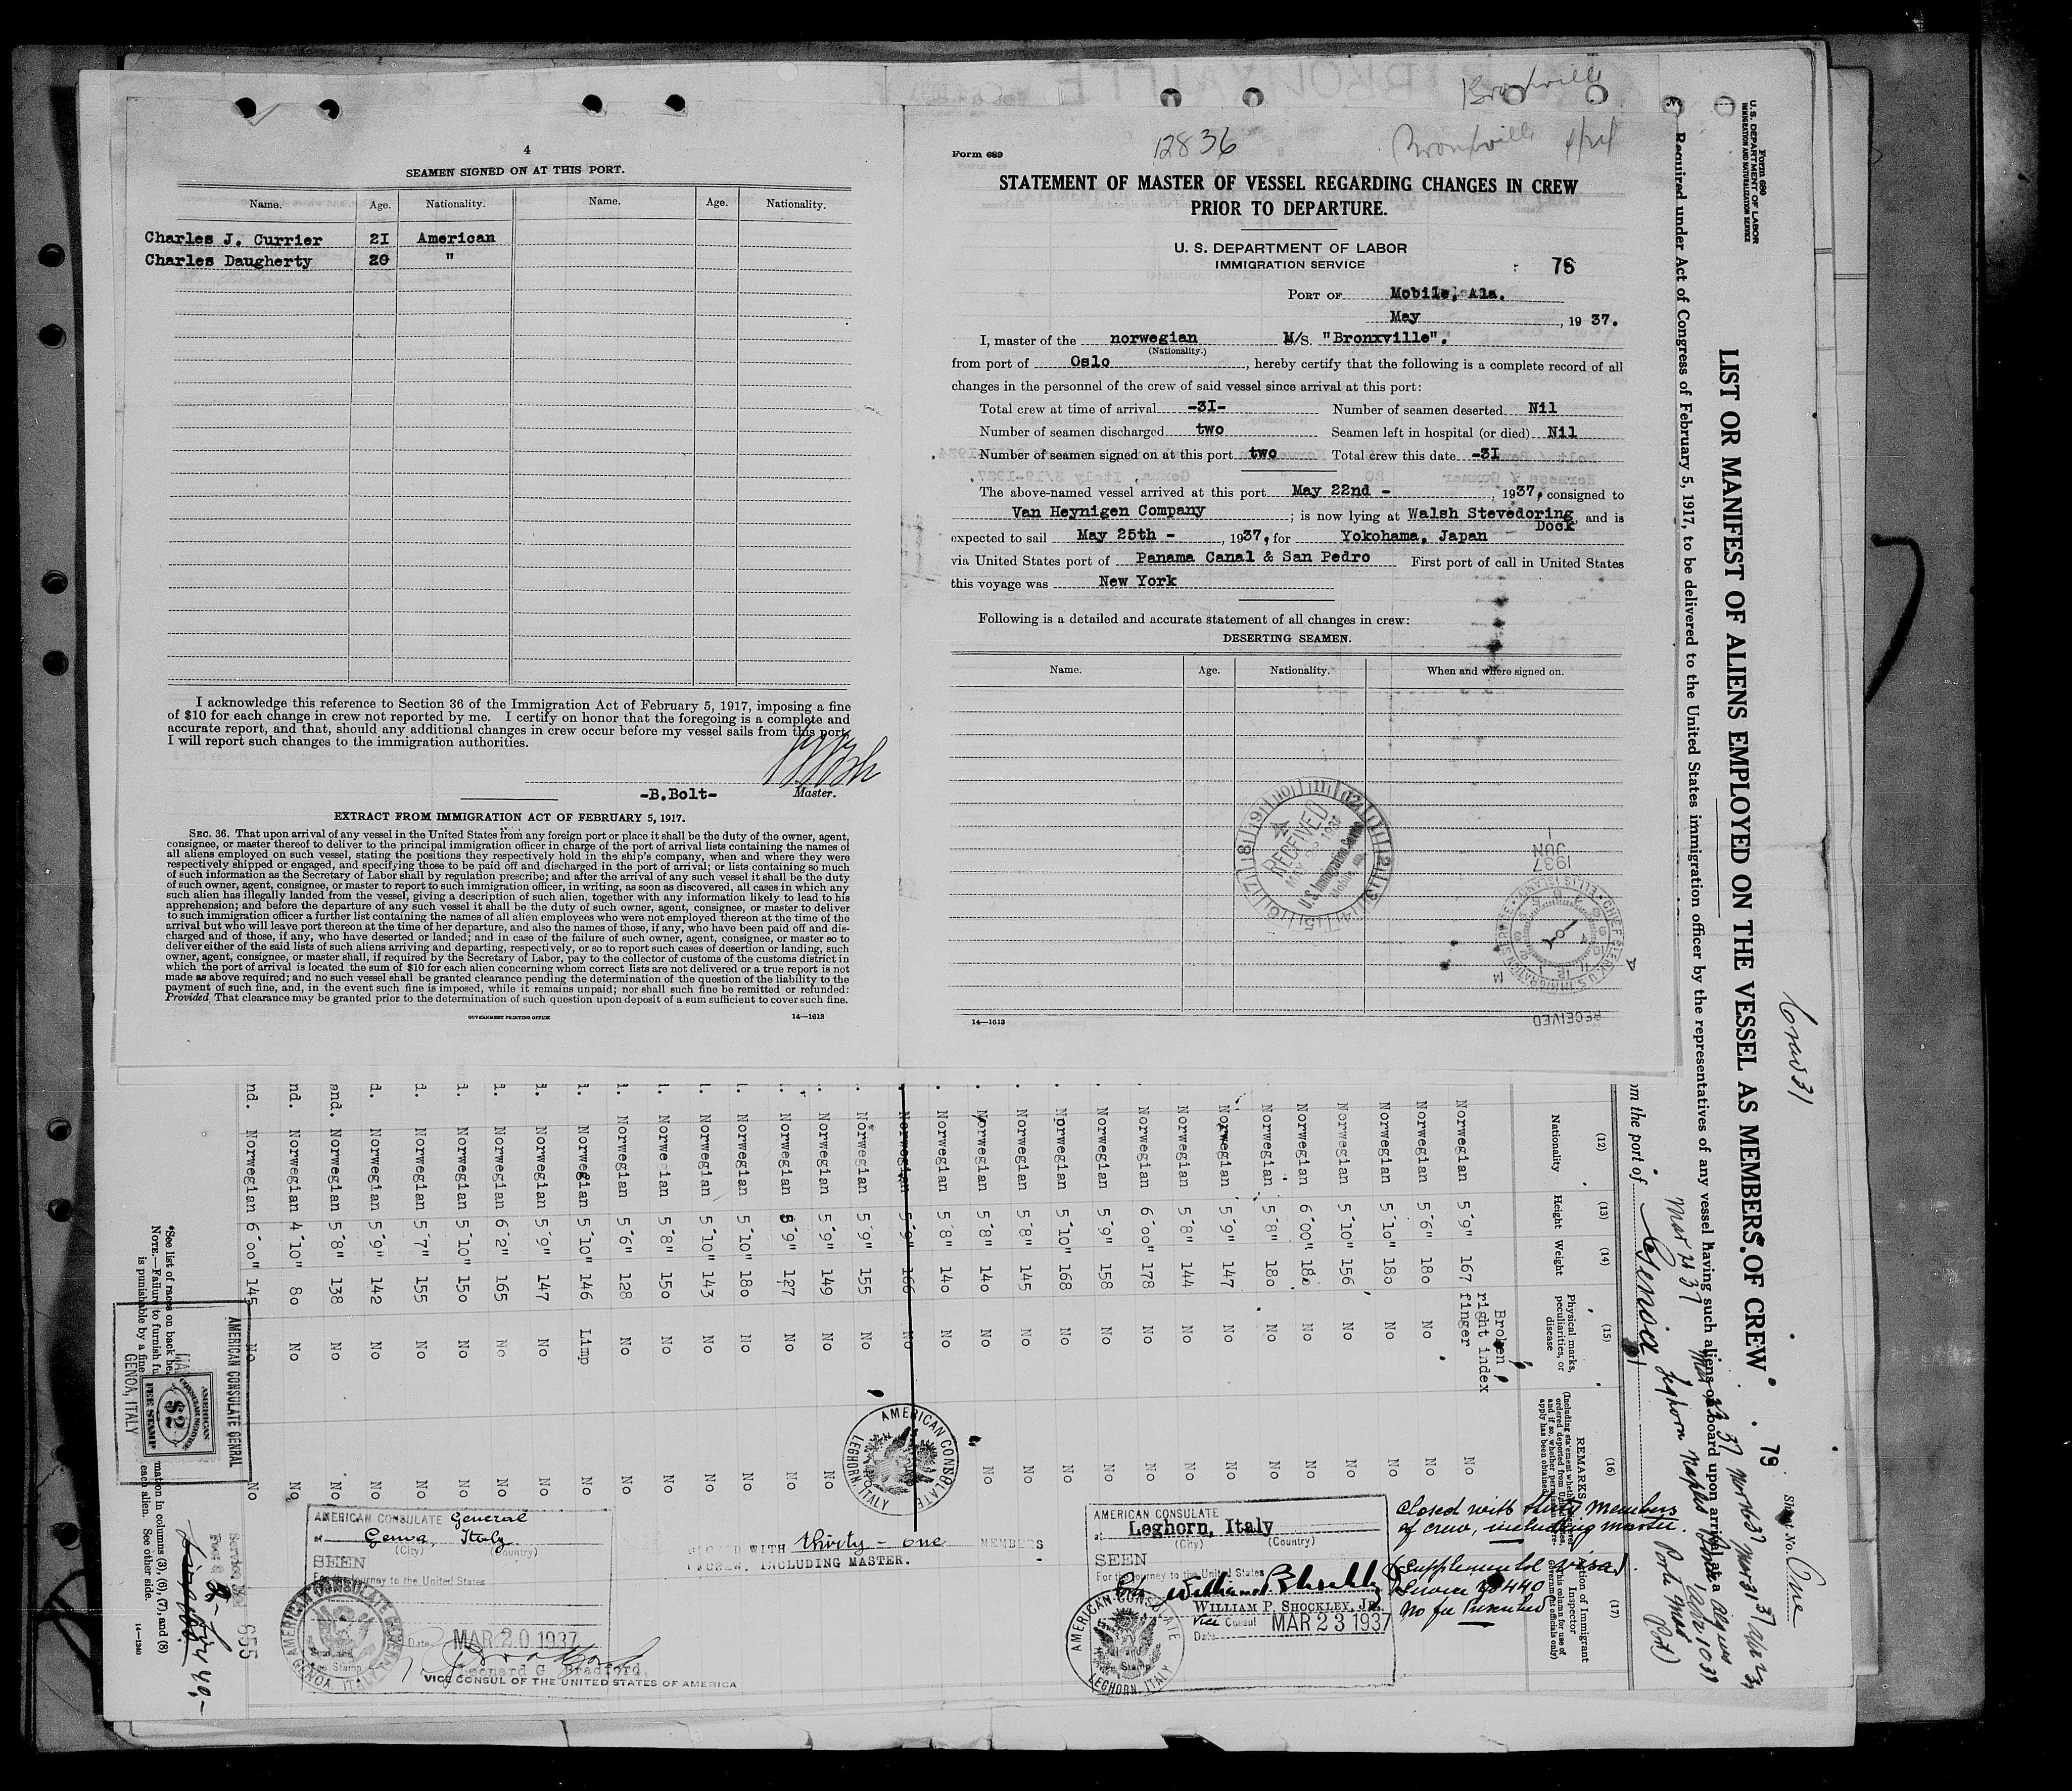 4
SEAMEN SIGNED ON AT THIS PORT.
Name. Age. Nationality. Name. Age. Nationality.
Charles J. Currier 21 American
Charles Daugherty 20 "
I acknowledge this reference to Section 36 of the Immigration Act of February 5, 1917, imposing a fine
of $10 for each change in crew not reported by me. I certify on honor that the foregoing is a complete and
accurate report, and that, should any additional changes in crew occur before my vessel sails from this port,
I will report such changes to the immigration authorities.
-B.Bolt- Master.
EXTRACT FROM IMMIGRATION ACT OF FEBRUARY 5, 1917.
SEC. 36. That upon arrival of any vessel in the United States from any foreign port or place it shall be the duty of the owner, agent,
consignee, or master thereof to deliver to the principal immigration officer in charge of the port of arrival lists containing the names of
all aliens employed on such vessel, stating the positions they respectively hold in the ship's company, when and where they were
respectively shipped or engaged, and specifying those to be paid off and discharged in the port of arrival; or lists containing so much
of such information as the Secretary of Labor shall by regulation prescribe; and after the arrival of any such vessel it shall be the duty
of such owner, agent, consignee, or master to report to such immigration officer, in writing, as soon as discovered, all cases in which any
such alien has illegally landed from the vessel, giving a description of such alien, together with any information likely to lead to his
apprehension; and before the departure of any such vessel it shall be the duty of such owner, agent, consignee, or master to deliver
to such immigration officer a further list containing the names of all alien employees who were not employed thereon at the time of the
arrival but who will leave port thereon at the time of her departure, and also the names of those, if any, who have been paid off and dis-
charged and of those, if any, who have deserted or landed; and in case of the failure of such owner, agent, consignee, or master so to
deliver either of the said lists of such aliens arriving and departing, respectively, or so to report such cases of desertion or landing, such
owner, agent, consignee, or master shall, if required by the Secretary of Labor, pay to the collector of customs of the customs district in
which the port of arrival is located the sum of $10 for each alien concerning whom correct lists are not delivered or a true report is not
made as above required; and no such vessel shall be granted clearance pending the determination of the question of the liability to the
payment of such fine, and, in the event such fine is imposed, while it remains unpaid; nor shall such fine be remitted or refunded:
Provided, That clearance may be granted prior to the determination of such question upon deposit of a sum sufficient to cover such fine.
GOVERNMENT PRINTING OFFICE 14—1613
Bronxville
12836 Bronxville
Form 689
STATEMENT OF MASTER OF VESSEL REGARDING CHANGES IN CREW
PRIOR TO DEPARTURE.
U. S. DEPARTMENT OF LABOR
IMMIGRATION SERVICE
PORT OF Mobile, Ala.
May, 1937.
I, master of the norwegian M/S. "Bronxville".
(Nationality.)
from port of Oslo, hereby certify that the following is a complete record of all
changes in the personnel of the crew of said vessel since arrival at this port:
Total crew at time of arrival -31- Number of seamen deserted Nil
Number of seamen discharged two Seamen left in hospital (or died) Nil
Number of seamen signed on at this port two Total crew this date -31
The above-named vessel arrived at this port May 22nd -, 1937, consigned to
Van Heynigen Company; is now lying at Walsh Stevedoring Dock, and is
expected to sail May 25th -, 1937, for Yokohama, Japan
via United States port of Panama Canal & San Pedro First port of call in United States
this voyage was New York
Following is a detailed and accurate statement of all changes in crew:
DESERTING SEAMEN.
Name. Age. Nationality. When and where signed on.
RECEIVED
U.S. Immigration Service
Mobile,
JUN
1937
RECEIVED
14—1613
Form 680
U. S. DEPARTMENT OF LABOR
IMMIGRATION AND NATURALIZATION SERVICE
LIST OR MANIFEST OF ALIENS EMPLOYED ON THE VESSEL AS MEMBERS OF CREW
Required under Act of Congress of February 5, 1917, to be delivered to the United States immigration officer by the representatives of any vessel having such aliens on board upon arrival at a
Sheet No. One
79
Crew 31
from the port of Genoa
(12) (13) (14) (15) (16) (17)
Nationality Height Weight Physical marks, peculiarities, or disease REMARKS
Action of Immigrant Inspector
Norwegian 5'9" 167 Broken right index finger No
Norwegian 5'6" 180 No No
Norwegian 5'10" 180 No No
Norwegian 5'10" 156 No No
Norwegian 6'00" 180 No No
Norwegian 5'8" 180 No No
Norwegian 5'9" 147 No No
Norwegian 5'8" 144 No No
Norwegian 6'00" 178 No No
Norwegian 5'9" 158 No No
Norwegian 5'10" 168 No No
Norwegian 5'8" 145 No No
Norwegian 5'8" 140 No No
Norwegian 5'8" 140 No
Norwegian 5'9" 166 No
Norwegian 5'9" 155 No
Norwegian 5'9" 149 No No
Norwegian 5'9" 127 No No
Norwegian 5'10" 180 No No
Norwegian 5'10" 143 No No
Norwegian 5'8" 150 No No
Norwegian 5'6" 128 No No
Norwegian 5'10" 146 Limp No
Norwegian 5'9" 147 No No
Norwegian 6'2" 165 No No
Norwegian 5'10" 150 No No
Norwegian 5'7" 155 No No
Norwegian 5'9" 142 No No
Norwegian 5'8" 138 No No
Norwegian 4'10" 80 No No
Norwegian 6'00" 145 No No
AMERICAN CONSULATE
at Leghorn, Italy
(City) (Country)
SEEN
For the journey to the United States
William P. Shockley
WILLIAM P. SHOCKLEY, JR.
Vice Consul
Date MAR 23 1937
AMERICAN CONSULATE LEGHORN, ITALY
Closed with thirty members
of crew, including master.
(Supplemental visa)
Service No 440
No fee Prescribed
CLOSED WITH thirty-one MEMBERS
OF CREW, INCLUDING MASTER.
AMERICAN CONSULATE General
at Genoa, Italy.
(City) (Country)
SEEN
For the journey to the United States
Date MAR 20 1937
Leonard G. Bradford,
VICE CONSUL OF THE UNITED STATES OF AMERICA
AMERICAN CONSULATE GENERAL GENOA, ITALY
AMERICAN CONSULATE GENRAL
GENOA, ITALY
AMERICAN CONSULAR SERVICE $2 FEE STAMP
*See list of races on back
NOTE.—Failure to furnish
is punishable by a fine
mation in columns (3), (6), (7), and (8)
each alien. See other side.
14—1940
655